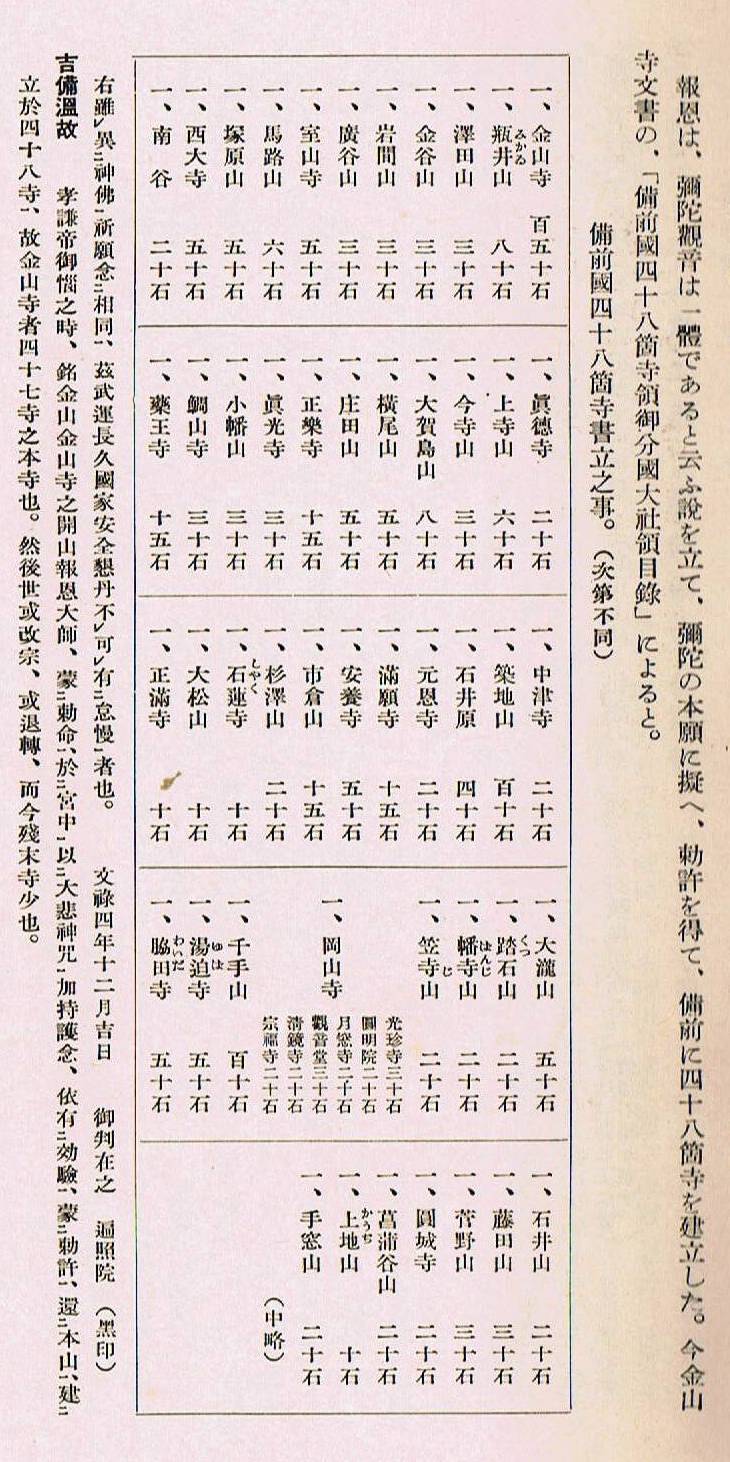 報恩は、彌陀觀音は一體であると云ふ說を立て、彌陀の本願に擬へ、勅許を得て、備前に四十八箇寺を建立した。今金山
寺文書の、「備前國四十八箇寺領御分國大社領目錄」によると。
備前國四十八箇寺書立之事。（次第不同）
一、金山寺 百五十石
一、瓶井山 八十石
みかる
一、澤田山 三十石
一、金谷山 三十石
一、岩間山 三十石
一、廣谷山 三十石
一、室山寺 五十石
一、馬路山 六十石
一、塚原山 五十石
一、西大寺 五十石
一、南谷 二十石
一、眞德寺 二十石
一、上寺山 六十石
一、今寺山 三十石
一、大賀島山 八十石
一、橫尾山 五十石
一、庄田山 五十石
一、正樂寺 十五石
一、眞光寺 三十石
一、小幡山 三十石
一、鯛山寺 三十石
一、藥王寺 十五石
一、中津寺 二十石
一、築地山 百十石
一、石井原 四十石
一、元恩寺 二十石
一、滿願寺 十五石
一、安養寺 五十石
一、市倉山 十五石
一、杉澤山 二十石
一、石蓮寺 十石
しやく
一、大松山 十石
一、正滿寺 十石
一、大瀧山 五十石
一、踏石山 二十石
くつ
一、幡寺山 二十石
はんじ
一、笠寺山 二十石
じ
一、岡山寺
光珍寺三十石
圓明院二十石
月窓寺二十石
觀音堂三十石
淸鏡寺二十石
宗福寺二十石
一、千手山 百十石
一、湯迫寺 五十石
ゆは
一、脇田寺 五十石
わいだ
一、石井山 二十石
一、藤田山 三十石
一、菅野山 三十石
一、圓城寺 二十石
一、菖蒲谷山 二十石
一、上地山 十石
かうち
一、手窓山 二十石
（中略）
右雖レ異二神佛一祈願念二相同一、茲武運長久國家安全懇丹不レ可レ有二怠慢一者也。 文祿四年十二月吉日 御判在之 遍照院（黑印）
吉備溫故 孝謙帝御惱之時、銘金山金山寺之開山報恩大師、蒙二勅命一、於二宮中一以二大悲神咒一加持護念、依有二効驗一、蒙二勅許一、還二本山一、建二
立於四十八寺一、故金山寺者四十七寺之本寺也。然後世或改宗、或退轉、而今殘末寺少也。